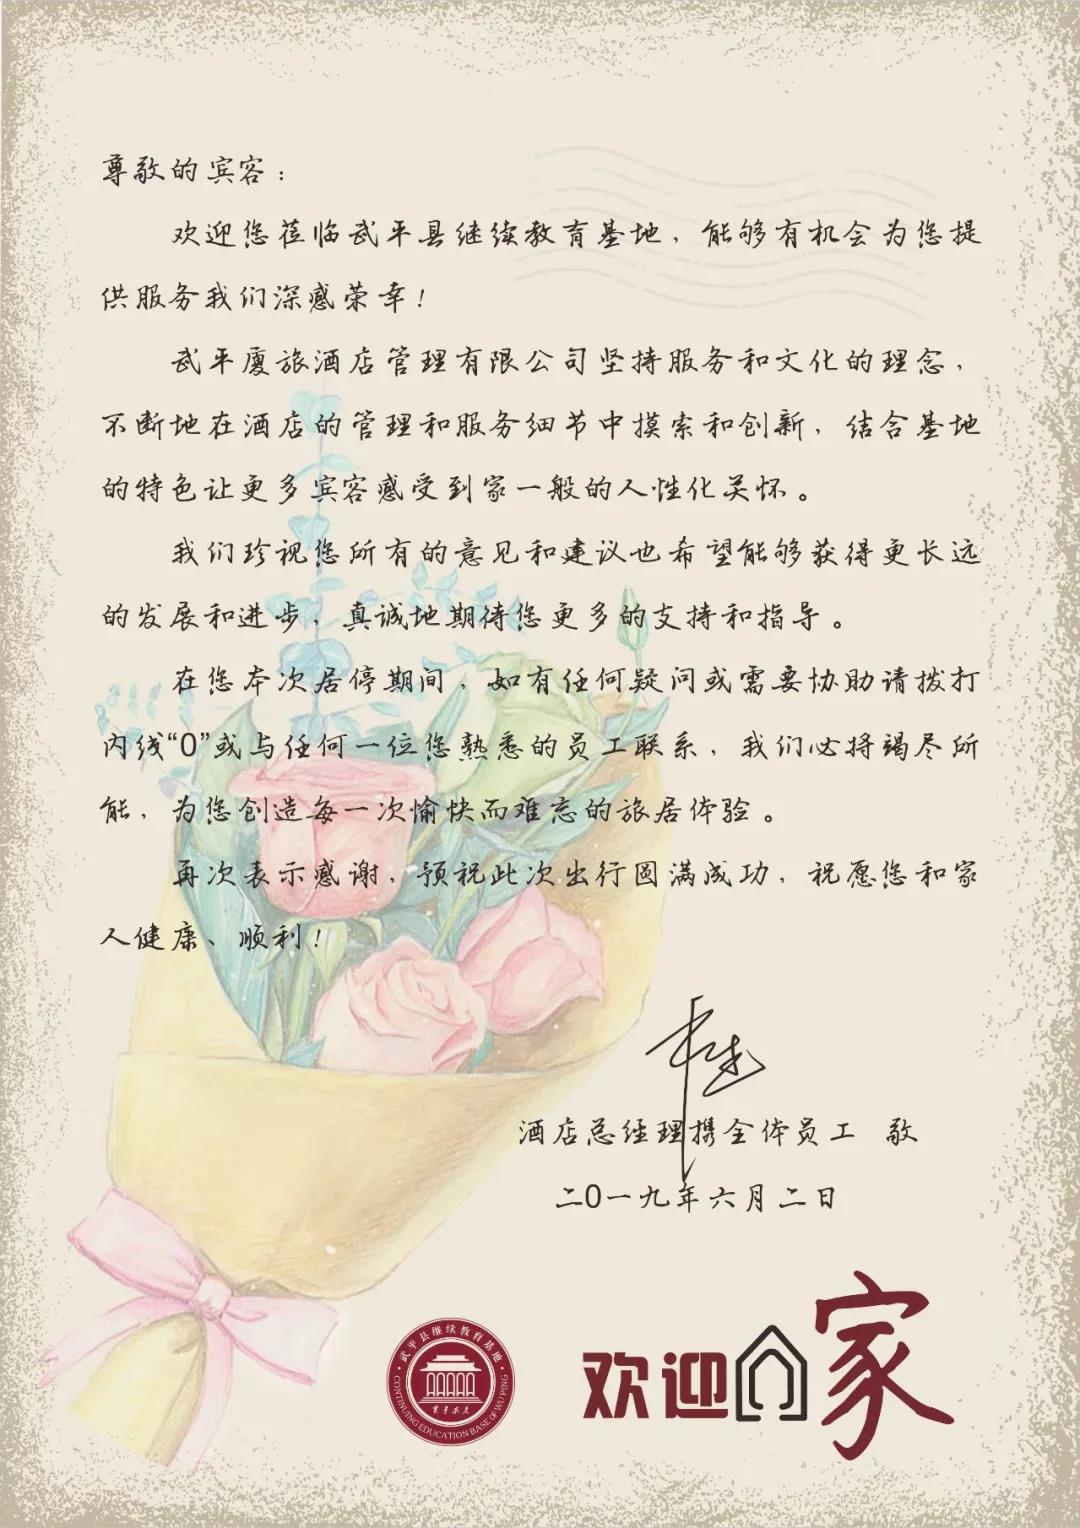 尊敬的宾客：
欢迎您莅临武平县继续教育基地，能够有机会为您提
供服务我们深感荣幸！
武平厦旅酒店管理有限公司坚持服务和文化的理念，
不断地在酒店的管理和服务细节中摸索和创新，结合基地
的特色让更多宾客感受到家一般的人性化关怀。
我们珍视您所有的意见和建议也希望能够获得更长远
的发展和进步，真诚地期待您更多的支持和指导。
在您本次居停期间，如有任何疑问或需要协助请拨打
内线“0”或与任何一位您熟悉的员工联系，我们必将竭尽所
能，为您创造每一次愉快而难忘的旅居体验。
再次表示感谢，预祝此次出行圆满成功，祝愿您和家
人健康、顺利！
酒店总经理携全体员工 敬
二0一九年六月二日
武平县继续教育基地
CONTINUING EDUCATION BASE OF WUPING
欢迎回家